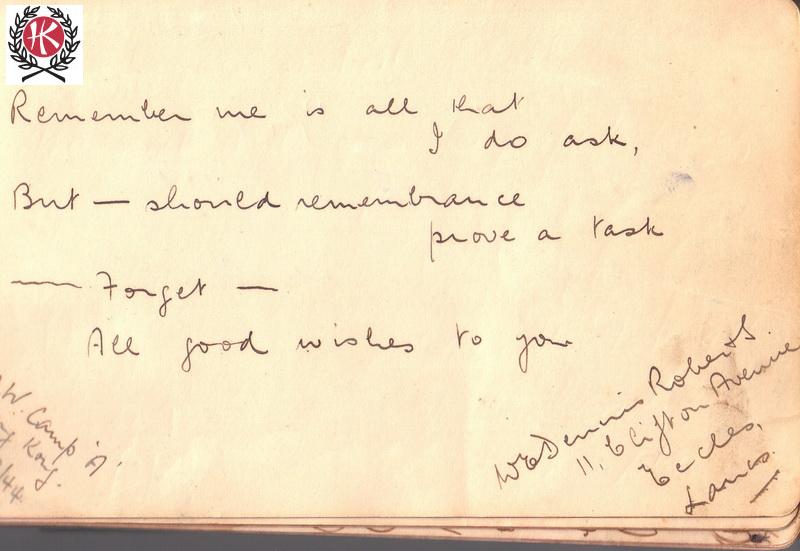 HK
Remember me is all that
I do ask,
But — should remembrance
prove a task
— Forget —
All good wishes to you
W E Dennis Roberts.
11, Clifton Avenue
Eccles,
Lancs.
W. Camp 'A'.
Kong.
/44